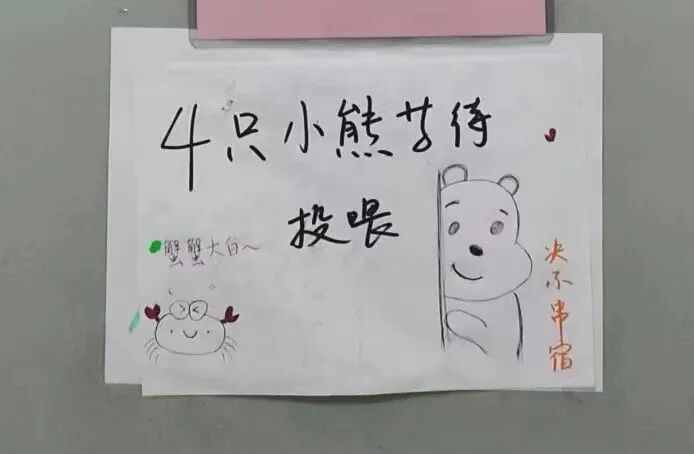 4只小熊等待
投喂
蟹蟹大白～
决不串宿